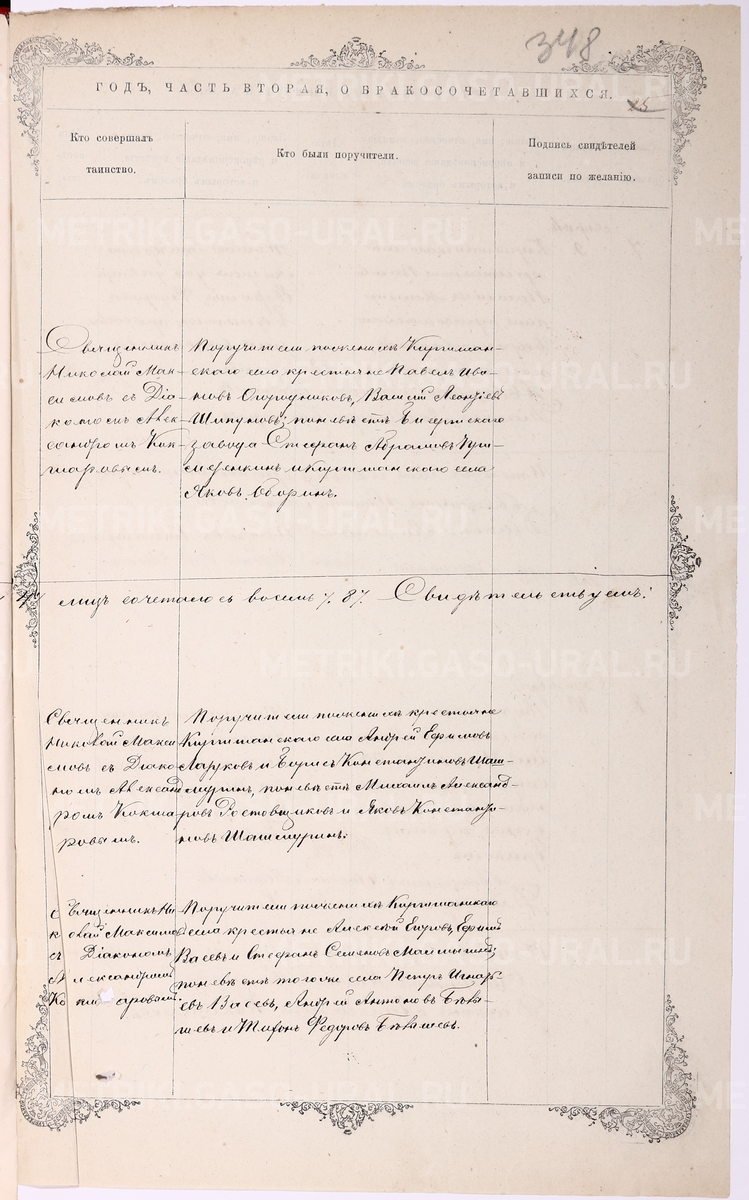 348
ГОДЪ, ЧАСТЬ ВТОРАЯ, О БРАКОСОЧЕТАВШИХСЯ.
Кто совершалъ
таинство.
Кто были поручители.
Подпись свидѣтелей
записи по желанію.
Священникъ
Николай Мак-
симовъ съ Діа-
кономъ Алек-
сандромъ Кок-
шаровымъ.
Поручители по женихѣ Киргишан-
скаго села крестьяне Павелъ Ива-
новъ Огородниковъ, Василій Леонтіевъ
Шипуновъ; по невѣстѣ Бисертскаго
завода Стефанъ Абрамовъ
и Киргишанскаго села
Яковъ Оборинъ.
лицъ сочеталось восемь /. 8 /. Свидѣтельствуемъ:
Священникъ
Николай Макси
мовъ съ Діако
номъ Александ
ромъ Кокша
ровымъ.
Поручители по женихѣ крестьяне
Киргишанскаго села Андрей Ефимовъ
и Борисъ Константиновъ Шаш-
муринъ, по невѣстѣ Михаилъ Александ-
ровъ Ростовщиковъ и Яковъ Констант-
новъ Шашмуринъ.
Священникъ Ни
колай Максимовъ
съ Діакономъ
Александромъ
Кокшаровымъ.
Поручители по женихѣ Киргишанскаго
села крестьяне Алексѣй Егоровъ, Ефимъ
Васевъ и Стефанъ Семеновъ
по невѣстѣ того же села Петръ Игнать-
евъ Васевъ, Андрей Антоновъ
и Федоровъ
METRIKI.GASO-URAL.RU